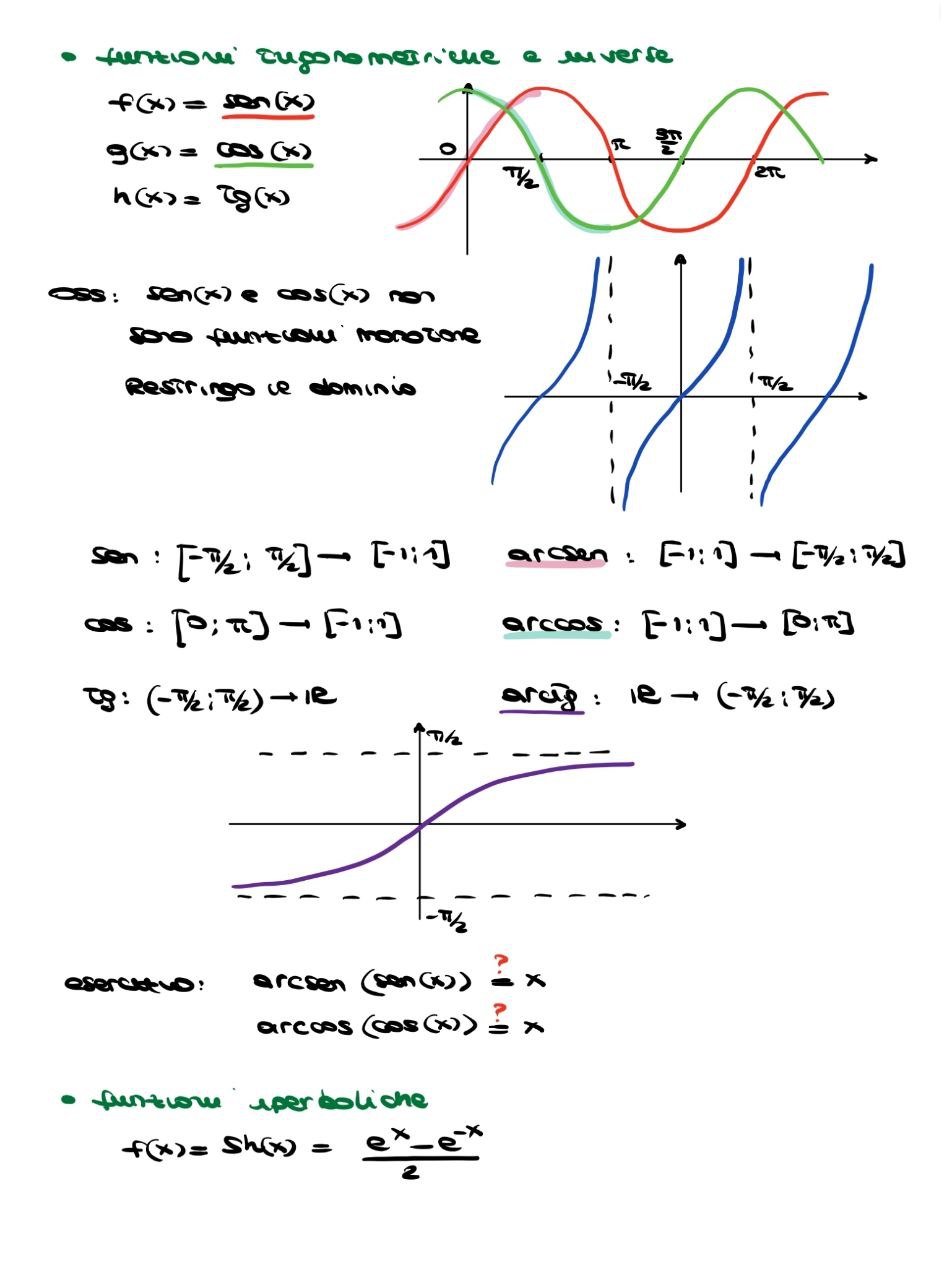 • funzioni trigonometriche e inverse
f(x) = sen(x)
g(x) = cos(x)
h(x) = tg(x)
0 π/2 π 3π/2 2π
oss: sen(x) e cos(x) non
sono funzioni monotone
Restringo il dominio
-π/2 π/2
sen : [-π/2 ; π/2] → [-1;1] arcsen : [-1;1] → [-π/2 ; π/2]
cos : [0; π] → [-1;1] arccos : [-1;1] → [0;π]
tg : (-π/2 ; π/2) → IR arctg : IR → (-π/2 ; π/2)
π/2
-π/2
esercizio: arcsen (sen(x)) ?= x
arccos (cos(x)) ?= x
• funzioni iperboliche
f(x) = Sh(x) = (e^x - e^-x)/2